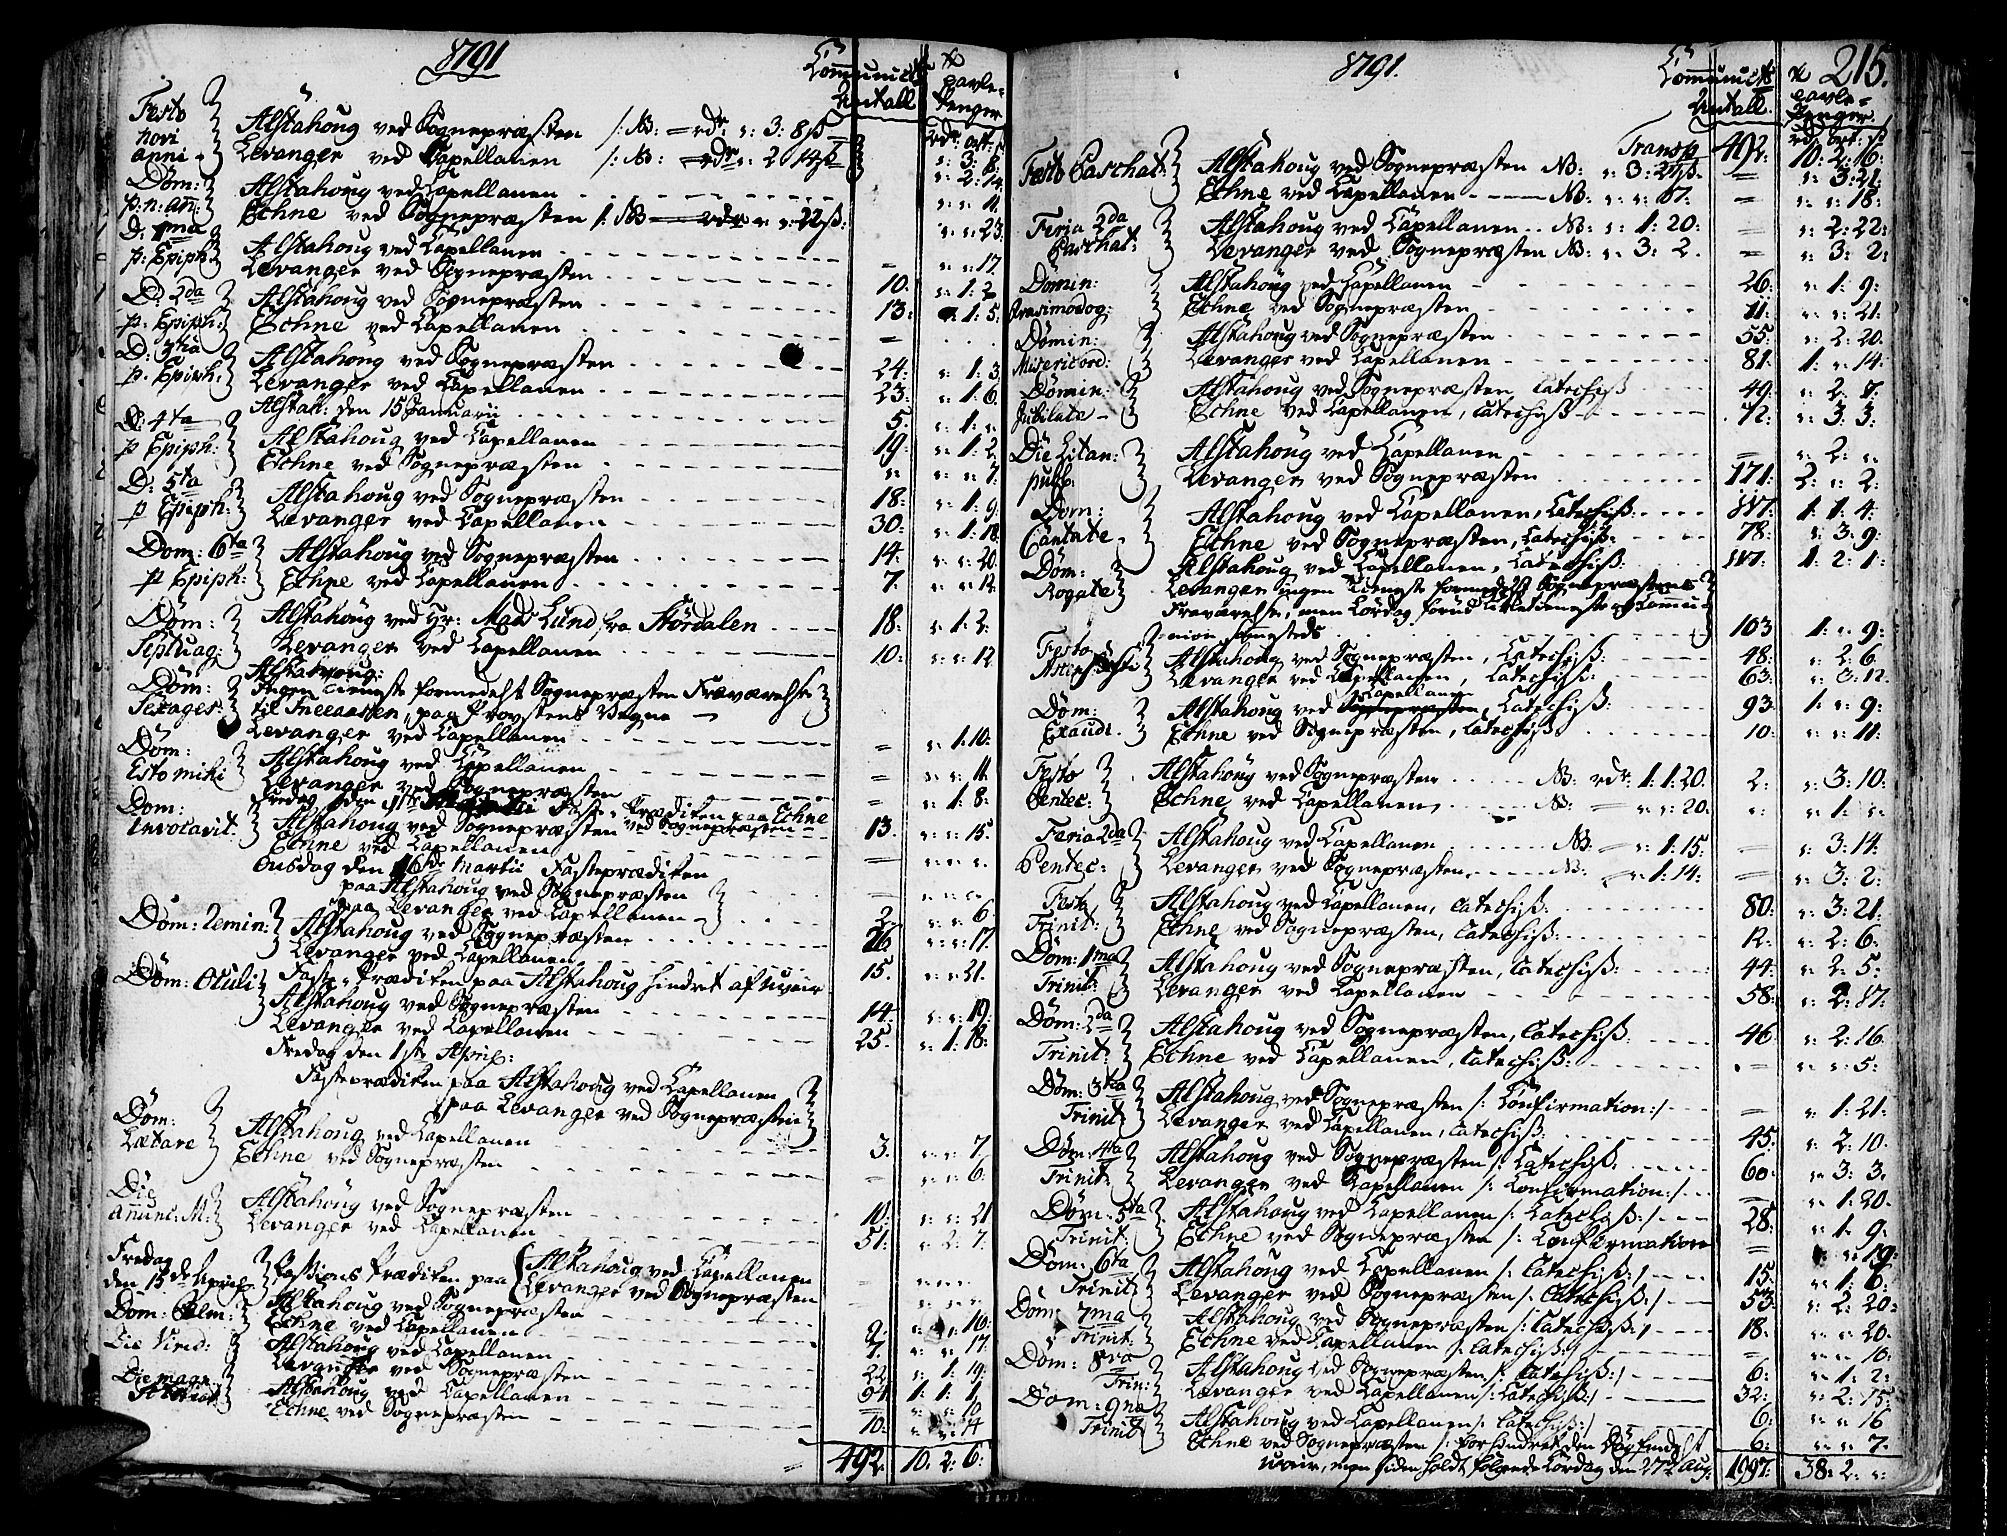 1791
Communic: Antall
Tavle-Penger
rdr ort. ß
Festo novi anni
Alstahoug ved Sognepræsten /: NB: = rdr " 3: 8 ß " 3: 8:
Levanger ved Capellanen /: NB: = rdr " 2 14 ß " 2: 14
Dom: p: n: an:
Alstahoug ved Capellanen " " 11
Echne ved Sognepræsten /: NB = rdr " " 22 ß: " " 23
D: 1ma p: Epiph:
Alstahoug ved Capellanen = " " 17.
Levanger ved Sognepræsten 10: " 1: 2
D: 2da p: Epiph:
Alstahoug ved Sognepræsten 13: " 1: 5:
Echne ved Capellanen =
D: 3tia p. Epiph:
Alstahoug ved Sognepræsten 24: " 1: 3
Levanger ved Capellanen 23: " 1: 6
Alstah: den 15 Januarii 5. " 1: "
D: 4ta p Epiph:
Alstahoug ved Capellanen 19: " 1: 2
Echne ved Sognepræsten " " " 7.
D: 5ta p Epiph:
Alstahoug ved Sognepræsten 18: " 1: 9
Levanger ved Capellanen 30: " 1: 18
Dom: 6ta p Epiph:
Alstahoug ved Sognepræsten 14: " " 20
Echne ved Capellanen 7 " " 12
Dom: Septuag:
Alstahoug ved Hr: Mads Lund fra Stördalen 18: " 1: 2:
Levanger ved Capellanen 10: " " 12
Dom: Sexages:
Alstahoug: Ingen Tieneste formedelst Sognepræsten Fraværelse
til Sneeaasen, paa Provstens Vegne
Levanger ved Capellanen = " 1: 10:
Dom: Esto mihi
Alstahoug ved Capellanen = " " 11
Levanger ved Sognepræsten = " 1: 8:
Fredag den 11te Faste-Prædiken paa Echne ved Sognepræsten
Dom: Invocavit:
Alstahoug ved Sognepræsten 13. " " 15.
Echne ved Capellanen = " " "
Onsdag den 16de Martii Fasteprædiken
paa Alstahoug ved Sognepræsten
paa Levanger ved Capellanen
Dom: Remin:
Alstahoug ved Sognepræsten 2. " " 6
Levanger ved Capellanen 26. " " 17.
Dom: Oculi
Faste-Prædiken paa Alstahoug hindret af uveir 15. " " 21.
Alstahoug ved Sognepræsten 14: " " 19
Levanger ved Capellanen 25. " 1: 18:
Fredag den 1ste April:
Fasteprædiken paa Alstahoug ved Capellanen
paa Levanger ved Sognepræsten
Dom: Lætare
Alstahoug ved Capellanen 3. " " 7.
Echne ved Sognepræsten " " 6:
Die Anunc: M:
Alstahoug ved Sognepræsten 10: " " 21
Levanger ved Capellanen 51: " 2: 7.
Fredag den 15de April: Passions Prædiken paa Alstahoug ved Capellanen
Levanger ved Sognepræsten
Dom: Palm:
Alstahoug ved Sognepræsten 9: " " 16:
Echne ved Capellanen 7. " " 17.
Die Virid:
Alstahoug ved Capellanen 22 " 1: 19:
Levanger ved Sognepræsten 94 1: 1: 1
Die magn
Alstahoug ved Capellanen = " " 10
Echne ved Sognepræsten 10: " " 4
492. 10: 2: 6:
1791.
215.
Communic: Antall
Tavle-Penger
rdr ort: ß
Transp 492: 10: 2: 16:
Festo Paschat:
Alstahoug ved Sognepræsten NB: " 3: 21 ß. " 3: 21:
Echne ved Capellanen NB: " " 17. = " " 18:
Feria 2da Paschat:
Alstahoug ved Capellanen NB: " 1: 20: = " 2: 22:
Levanger ved Sognepræsten NB: " 3: 2. = " 3: 2:
Domin: Quasimodog:
Alstahoug ved Capellanen 26: " 1: 9:
Echne ved Sognepræsten 11: " " 21:
Domin: Misericord:
Alstahoug ved Sognepræsten 55: " 2: 20:
Levanger ved Capellanen 81: 1: " 14:
Domin: Jubilate
Alstahoug ved Sognepræsten Catechiß 49: " 2: 7.
Echne ved Capellanen, Catechiß 12: " 3: 3:
Die Litan: publ:
Alstahoug ved Capellanen = " 2: "
Levanger ved Sognepræsten 171: 2: " 2:
Dom: Cantate
Alstahoug ved Capellanen, Catechiß: 117: 1: 1: 4:
Echne ved Sognepræsten, Catechiß: 78: " 3: 9:
Dom: Rogate
Alstahoug ved Capellanen, Catechiß: 117. 1: 2: 1:
Levanger Ingen Tieneste formedelst Sognepræstens
Fraværelse, men Lördag forud Tieneste og Commu-
nion sammesteds 103 1: " 9:
Festo Ascens:
Alstahoug ved Sognepræsten, Catechiß: 48: " 2: 6
Levanger ved Capellanen, Catechiß: 63: " 3: 12
Dom: Exaudi
Alstahoug ved Capellanen, Catechiß: 93. 1: " 9:
Echne ved Sognepræsten, Catechiß 10: " " 11:
Festo Pentec:
Alstahoug ved Sognepræsten NB: rdr: 1: 1: 20. 2: " 3: 10:
Echne ved Capellanen NB: = " " 20: " " 1: "
Feria 2da Pentec:
Alstahoug ved Capellanen NB: = " 1: 15: = " 3: 14:
Levanger ved Sognepræsten NB: " 1: 14: = " 3: 2:
Festo Trinit:
Alstahoug ved Capellanen, Catechiß: 80: " 3: 21
Echne ved Sognepræsten, Catechiß: 12: " 2: 6:
Dom: 1ma Trinit:
Alstahoug ved Sognepræsten, Catechiß: 44: " 2: 5:
Levanger ved Capellanen 58: " 2: 17:
Dom: 2da Trinit:
Alstahoug ved Sognepræsten, Catechiß: 46 " 2: 16
Echne ved Capellanen, Catechiß: = " " 5:
Dom: 3tia Trinit:
Alstahoug ved Sognepræsten /: Confirmation:/ = " 1: 21:
Levanger ved Capellanen, Catechiß: 45: " 2: 10:
Dom: 4ta Trinit:
Alstahoug ved Sognepræsten /: Catechiß: 60: " 3: 3.
Levanger ved Capellanen /: Confirmation:/ = " 1: 20:
Dom: 5ta Trinit:
Alstahoug ved Capellanen /: Catechiß:/ 28: " 1: 9:
Echne ved Sognepræsten /: Confirmation = " " 19:
Dom: 6ta Trinit:
Alstahoug ved Capellanen /: Catechiß:/ 15: " 1: 6:
Levanger ved Sognepræsten /: Catechiß:/ 53: " 2: 20:
Dom: 7ma Trinit:
Alstahoug ved Sognepræsten /: Catechiß:/ 18: " " 20.
Echne ved Capellanen /: Catechiß:/ = " " 10:
Dom: 8va Trin:
Alstahoug ved Sognepræsten /: Catechiß:/ 6: " 1: 2:
Levanger ved Capellanen /: Catechiß:/ 32: " 2: 15:
Dom: 9na Trinit
Alstahoug ved Capellanen /: Catechiß:/ 6: " " 16
Echne ved Sognepræsten /: forhindret den Dag formedelst 6: " " 7.
uveir, men siden holdt fölgende Lördag den 27de Aug: 1997: 38: 2: "